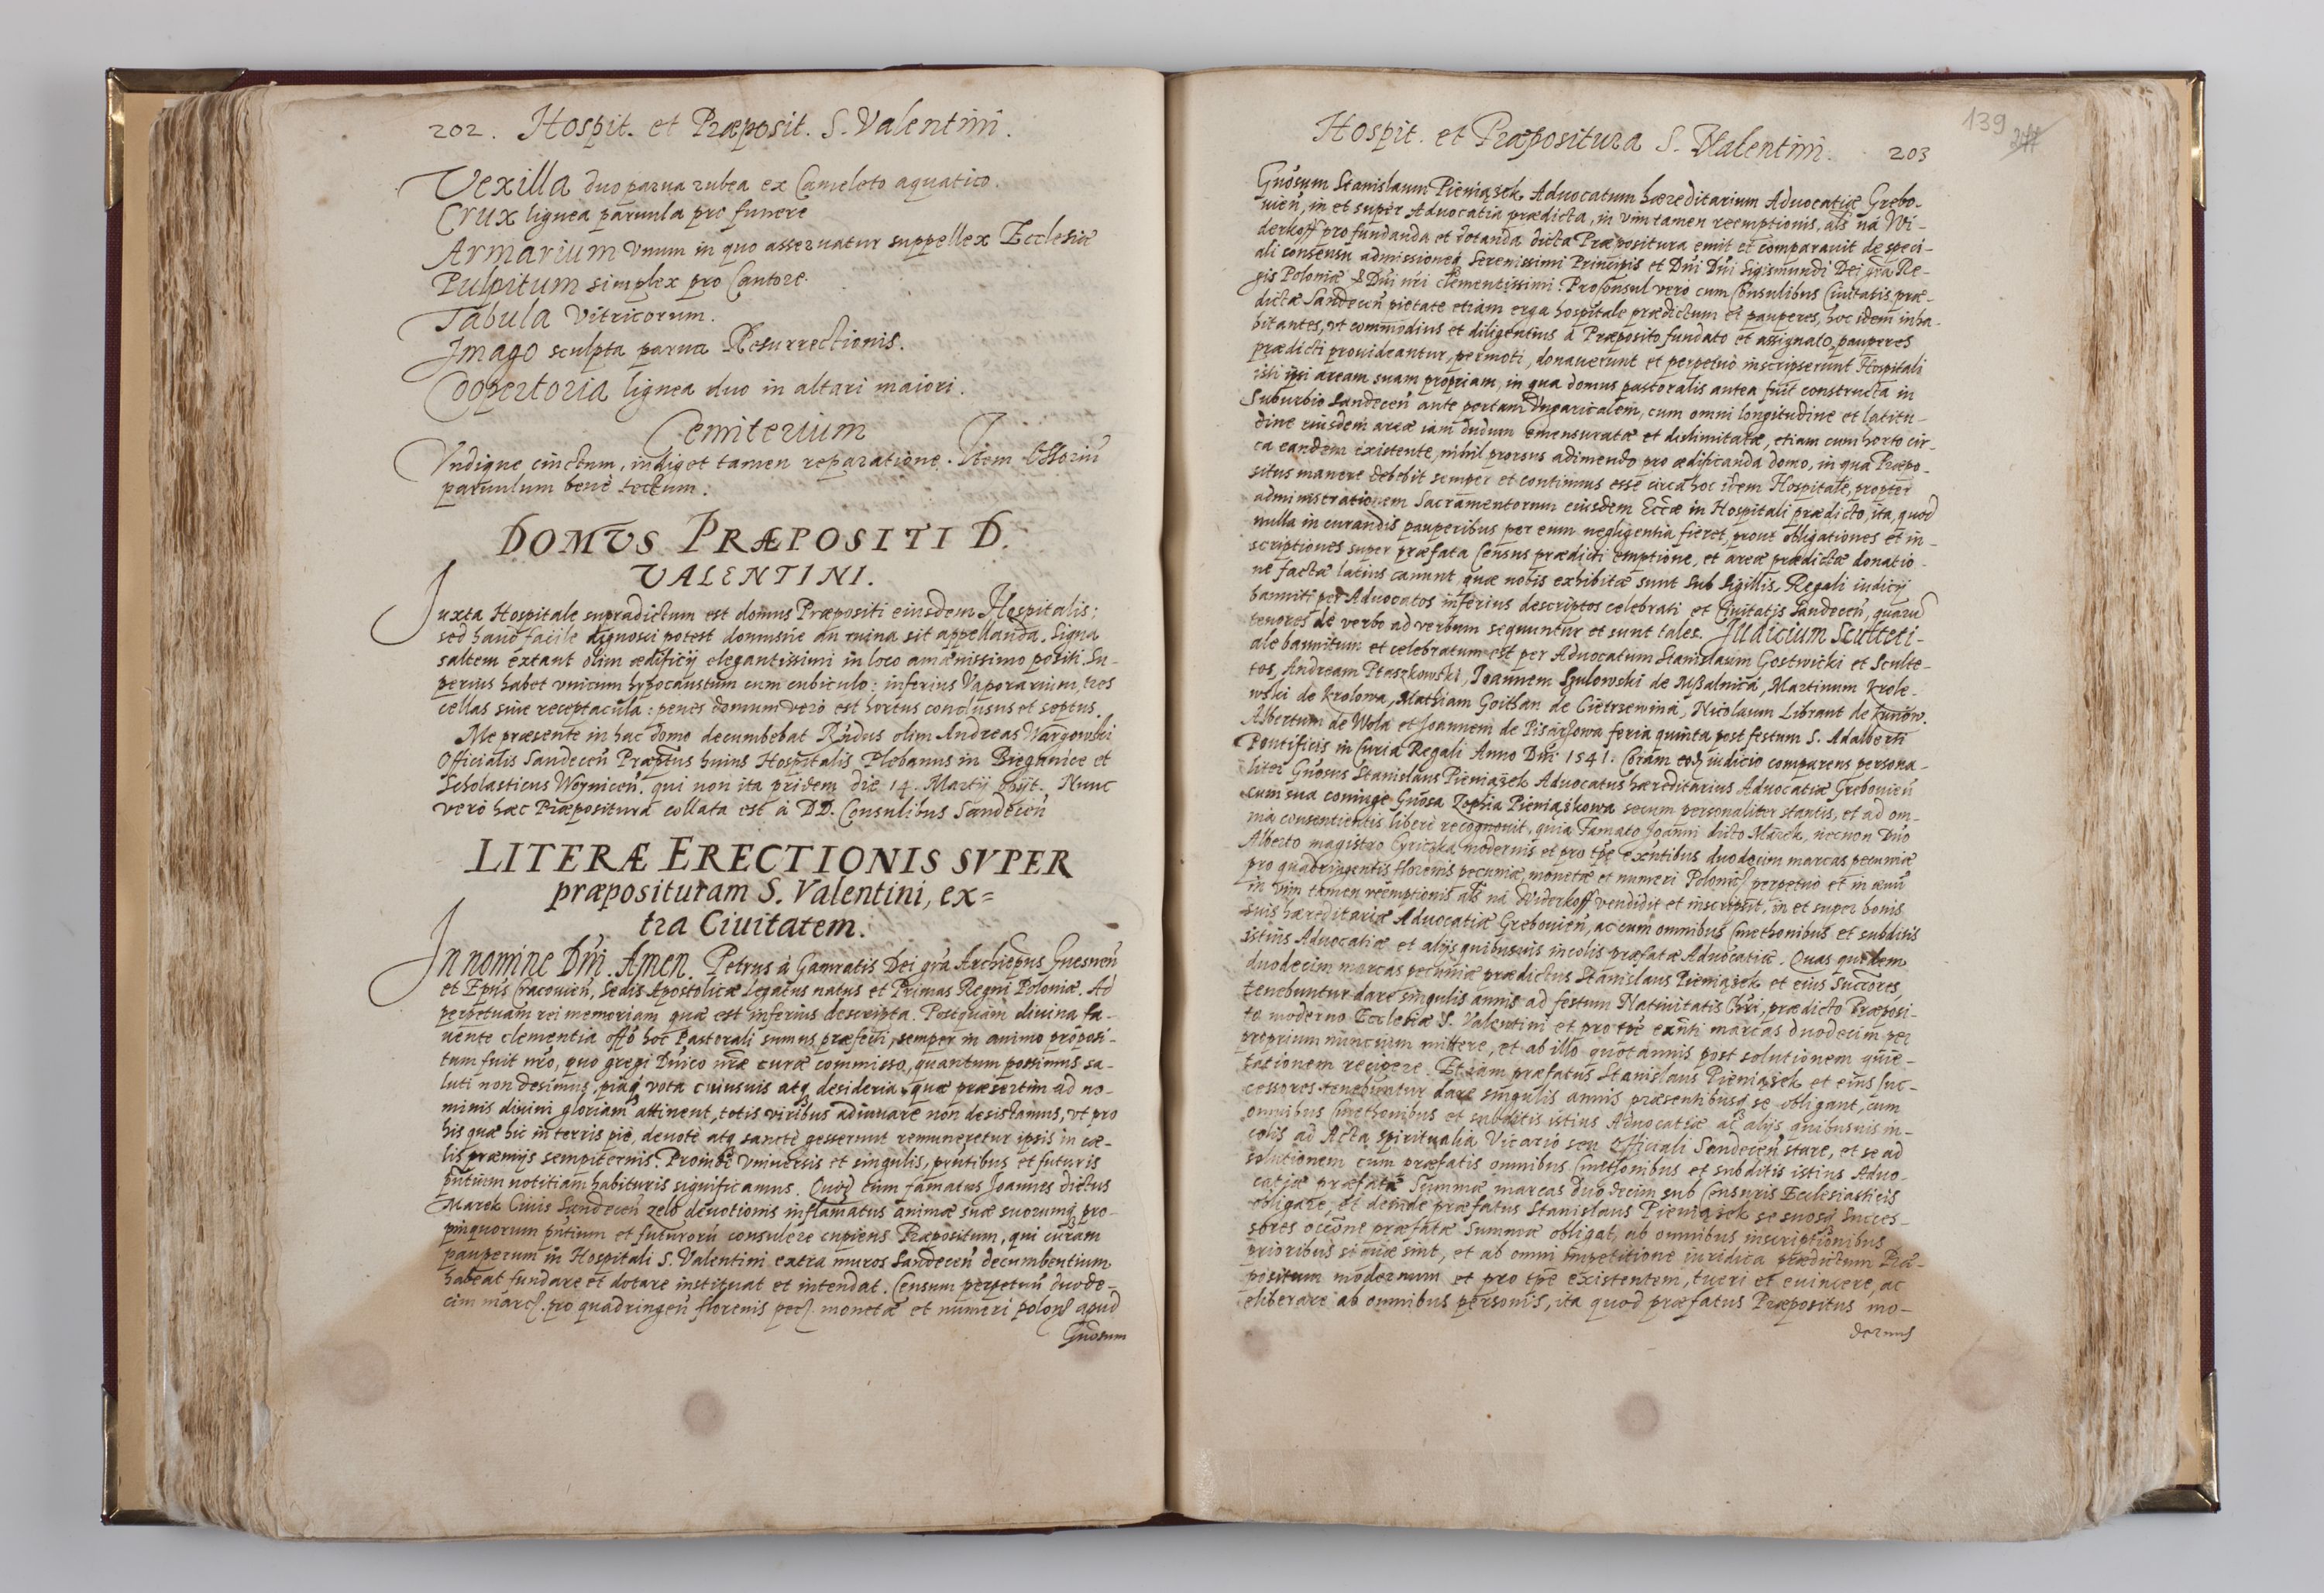 202. Hospit. et Præposit. S. Valentini.
Vexilla duo parua rubea ex Cameleto aquatico.
Crux lignea paruula pro funere
Armarium vnum in quo asseruatur suppellex Ecclesiæ
Pulpitum simplex pro Cantore.
Tabula Vitricorum.
Imago sculpta parua Resurrectionis.
Coopertoria lignea duo in altari maiori.
Cemiterium
Vndique cinctum, indiget tamen reparatione. Item Ossoriũ
paruulum benè tectum.
DOMVS PRÆPOSITI D.
VALENTINI.
Iuxta Hospitale supradictum est domus Præpositi eiusdem Hospitalis;
sed haud facile dignosci potest domusne an ruina sit appellanda. Signa
saltem extant olim ædificij elegantissimi in loco amænissimo positi. Su-
perius habet vnicum hypocaustum cum cubiculo; inferius Vaporarium, tres
cellas siue receptacula: penes domum verò est hortus conclusus et septus.
Me præsente in hac domo decumbebat Rñdus olim Andreas Wargowski
Officialis Sandeceñ Præptus huius Hospitalis Plebanus in Bieganice et
Scholasticus Woyniceñ. qui non ita pridem die 14. Martij obijt. Nunc
verò hæc Præpositura collata est à DD. Consulibus Sandeceñ
LITERÆ ERECTIONIS SVPER
præposituram S. Valentini, ex=
tra Ciuitatem.
In nomine Dñi. Amen. Petrus à Gamratis Dei grã Archiepũs Gnesneñ
et Epũs Cracouieñ, Sedis Apostolicæ Legatus natus et Primas Regni Poloniæ. Ad
perpetuam rei memoriam quæ est inferius descripta. Postquam diuina fa-
uente clementia offo hoc Pastorali sumus præfecti, semper in animo proposi-
tum fuit nrõ, quo gregi Dñico nræ curæ commisso, quantum possimus sa-
luti non desimus, piaq; vota cuiusuis atq; desideria, quæ præsertim ad no-
minis diuini gloriam attinent, totis viribus adiuuare non desistamus, vt pro
his quæ hic in terris piè, deuotè atq; sanctè gesserunt remuneretur ipsis in cæ-
lis præmijs sempiternis. Proinde Vniuersis et singulis, prñtibus et futuris
pñtium notitiam habituris significamus. Quod cum famatus Joannes dictus
Marek Ciuis Sandeceñ zelo deuotionis inflamatus animæ suæ suorumq; pro-
pinquorum pñtium et futurorũ consulere cupiens Præpositum, qui curam
pauperum in Hospitali S. Valentini extra muros Sandeceñ decumbentium
habeat fundare et dotare instituat et intendat. Censum perpetuũ duode-
cim marc. pro quadringeñ florenis pec. monetæ et numeri polon. apud
Gñosum
Hospit. et Præpositura S. Valentini. 203
139
Gñosum Stanislaum Pieniążek Aduocatum hæreditarium Aduocatiæ Grebo-
uieñ, in et super Aduocatia prædicta, in vim tamen reemptionis, als na Wi-
derkoff pro fundanda et dotanda dicta Præpositura emit et comparauit de speci-
ali consensu admissioneq; Serenissimi Principis et Dñi Dñi Sigismundi Dei grã Re-
gis Poloniæ & Dñi nri clementissimi: Proconsul verò cum Consulibus Ciuitatis præ-
dictæ Sandeceñ pietate etiam erga hospitale prædictum et pauperes, hoc idem inha-
bitantes, vt commodius et diligentius à Præposito fundato et assignato, pauperes
prædicti prouideantur, permoti, donauerunt et perpetuò inscripserunt Hospitali
isti ipsi aream suam propriam, in qua domus pastoralis antea fuit constructa in
Suburbio Sandeceñ ante portam Vngaricalem, cum omni longitudine et latitu-
dine eiusdem areæ iam dudum emensuratæ et dislimitatæ, etiam cum horto cir-
ca eandem existente, nihil prorsus adimendo pro ædificanda domo, in qua Præpo-
situs manere debebit semper et continuus esse circa hoc idem Hospitale, propter
administrationem Sacramentorum eiusdem Eccæ in Hospitali prædicto, ita, quod
nulla in curandis pauperibus per eum negligentia fieret, prout obligationes et in-
scriptiones super præfata Census prædicti emptione, et areæ prædictæ donatio-
ne factæ latius canunt, quæ nobis exhibitæ sunt sub Sigillis, Regali iudicij
banniti per Aduocatos inferius descriptos celebrati et Ciuitatis Sandeceñ, quarũ
tenores de verbo ad verbum sequuntur et sunt tales. Iudicium Sculteti-
ale bannitum et celebratum est per Aduocatum Stanislaum Gostwicki et Sculte-
tos, Andream Ptaszkowski, Joannem Szulowski de Mszalnica, Martinum Krole-
wski de Krolowa, Mathiam Goithan de Cietrzewina, Nicolaum Librant de Kunow.
Albertum de Wola et Joannem de Pisarzowa feria quinta post festum S. Adalberti
Pontificis in Curia Regali Anno Dñi 1541. Coram eod. iudicio comparens persona-
liter Gñosus Stanislaus Pieniążek Aduocatus hæreditarius Aduocatiæ Grebouieñ
cum sua coniuge Gñosa Zophia Pieniążkowa secum personaliter stantis, et ad om-
nia consentientis liberè recognouit, quia Famato Joanni dicto Marek, necnon Dño
Alberto magistro Cyriczka modernis et pro tpẽ exñtibus duodecim marcas pecuniæ
pro quadringentis florenis pecuniæ, monetæ et numeri Polonic. perpetuò et in æuũ
in vim tamen reemptionis als na Widerkoff vendidit et inscripsit, in et super bonis
suis hæreditariæ Aduocatiæ Grebouieñ, ac cum omnibus Cmethonibus et subditis
istius Aduocatiæ et alijs quibusuis incolis præfatæ Aduocatiæ. Quas quidem
duodecim marcas pecuniæ prædictus Stanislaus Pieniążek et eius Succores
tenebuntur dare singulis annis ad festum Natiuitatis Chri, prædicto Præposi-
to moderno Ecclesiæ S. Valentini et pro tpẽ exñti marcas duodecim per
proprium nuncium mittere, et ab illo quotannis post solutionem quie-
tationem recipere. Etiam præfatus Stanislaus Pieniążek et eius suc-
cessores tenebuntur dare singulis annis præsentibusq; se obligant, cum
omnibus Cmethonibus et subditis istius Aduocatiæ ac alijs quibusuis in-
colis ad Acta spiritualia Vicario seu Officiali Sandeceñ stare, et se ad
solutionem cum præfatis omnibus Cmethonibus et subditis istius Aduo-
catiæ præfatæ Summæ marcas duodecim sub Censuris Ecclesiasticis
obligare, et deinde præfatus Stanislaus Pieniążek se suosq; Succes-
sores occõne præfatæ Summæ obligat, ab omnibus inscriptionibus
prioribus si quæ sint, et ab omni impetitione iuridica prædictum Præ-
positum modernum et pro tpẽ existentem, tueri et euincere, ac
eliberare ab omnibus personis, ita quod præfatus Præpositus mo-
dernus